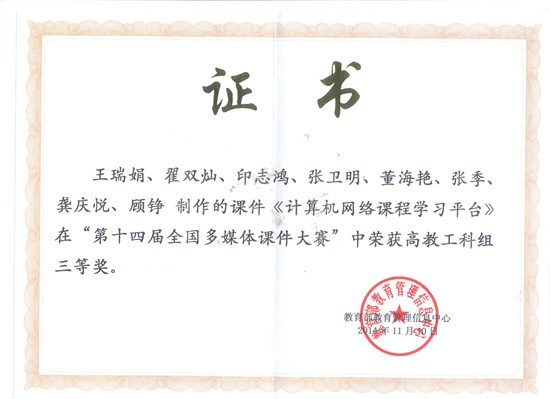 证 书
王瑞娟、翟双灿、印志鸿、张卫明、董海艳、张季、
龚庆悦、顾铮 制作的课件《计算机网络课程学习平台》
在“第十四届全国多媒体课件大赛”中荣获高教工科组
三等奖。
教育部教育管理信息中心
教育部教育管理信息中心
2014年11月10日